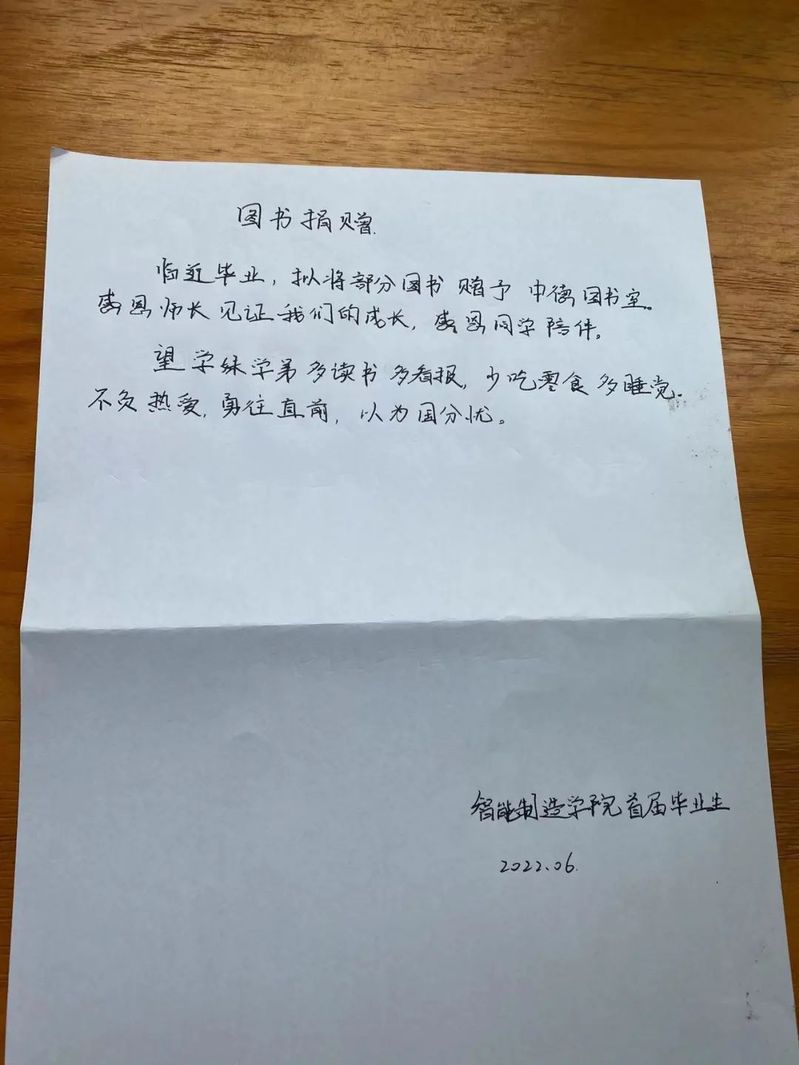 图书捐赠
临近毕业，拟将部分图书赠予中德图书室。
感恩师长见证我们的成长，感恩同学陪伴。
望学妹学弟多读书多看报，少吃零食多睡觉.
不负热爱，勇往直前，以为国分忧。
智能制造学院首届毕业生
2022.06.